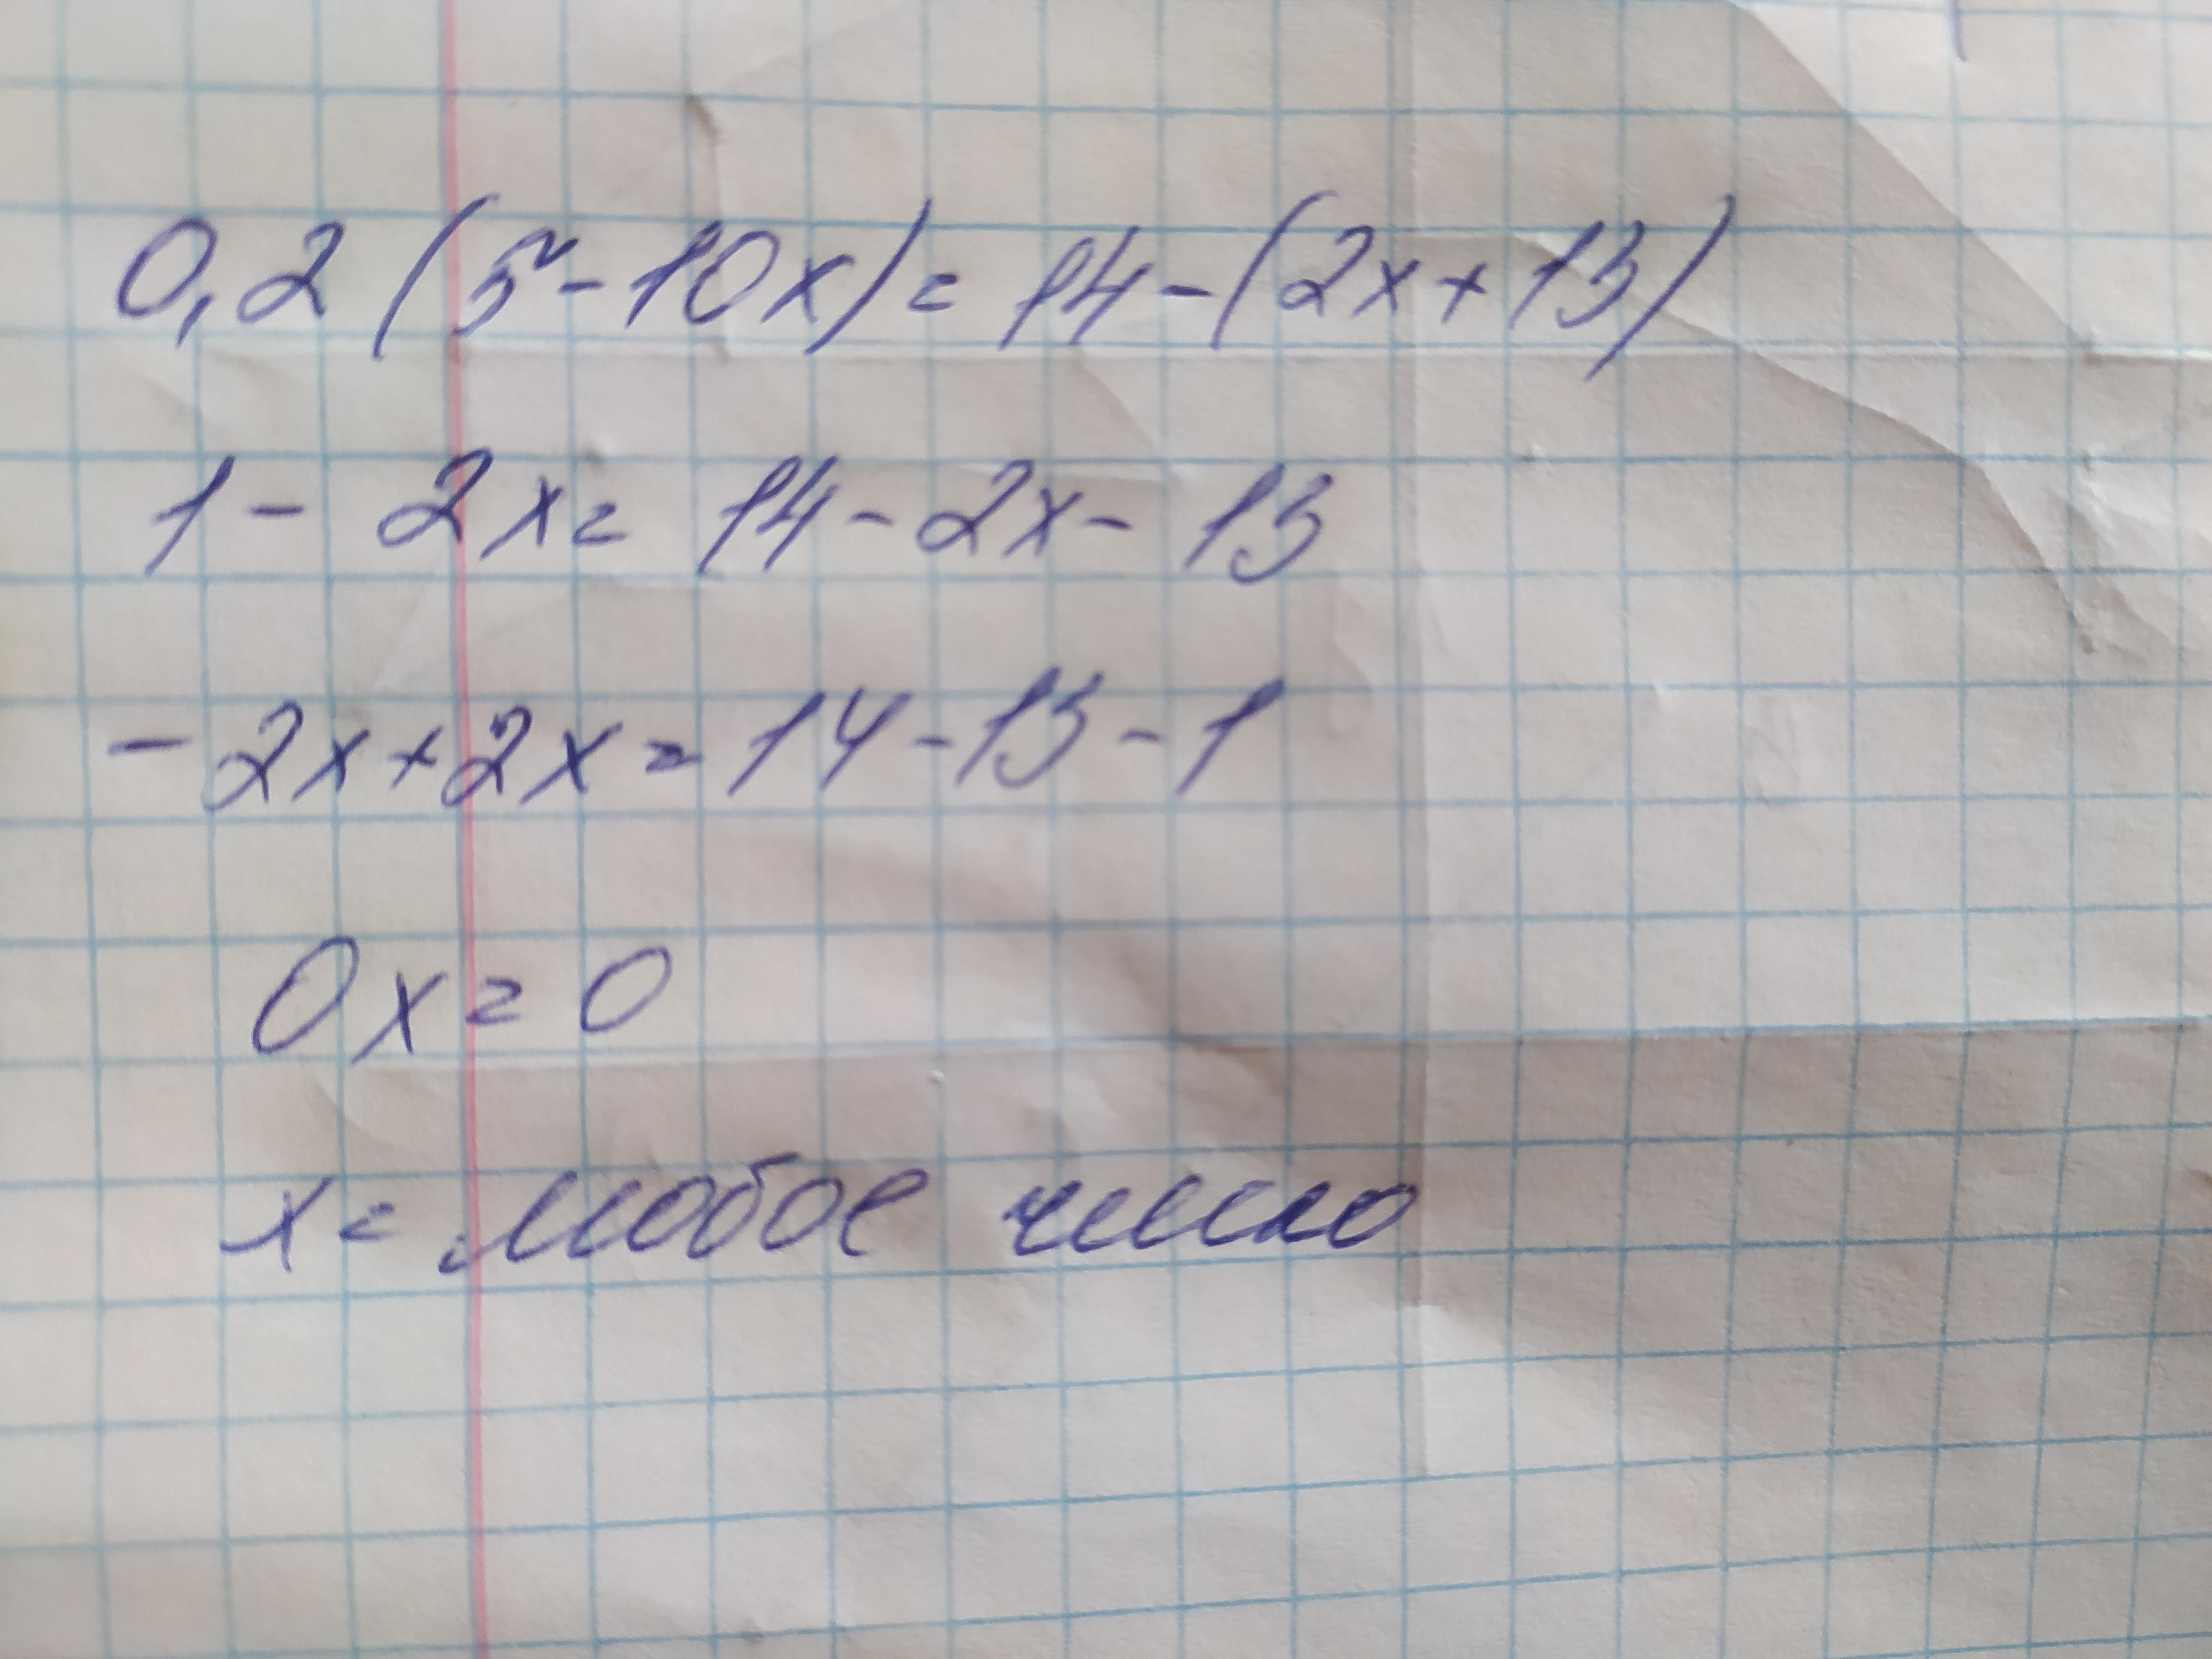 0,2 (5 - 10x) = 14 - (2x + 13)
1 - 2x = 14 - 2x - 13
- 2x + 2x = 14 - 13 - 1
0x = 0
x = любое число